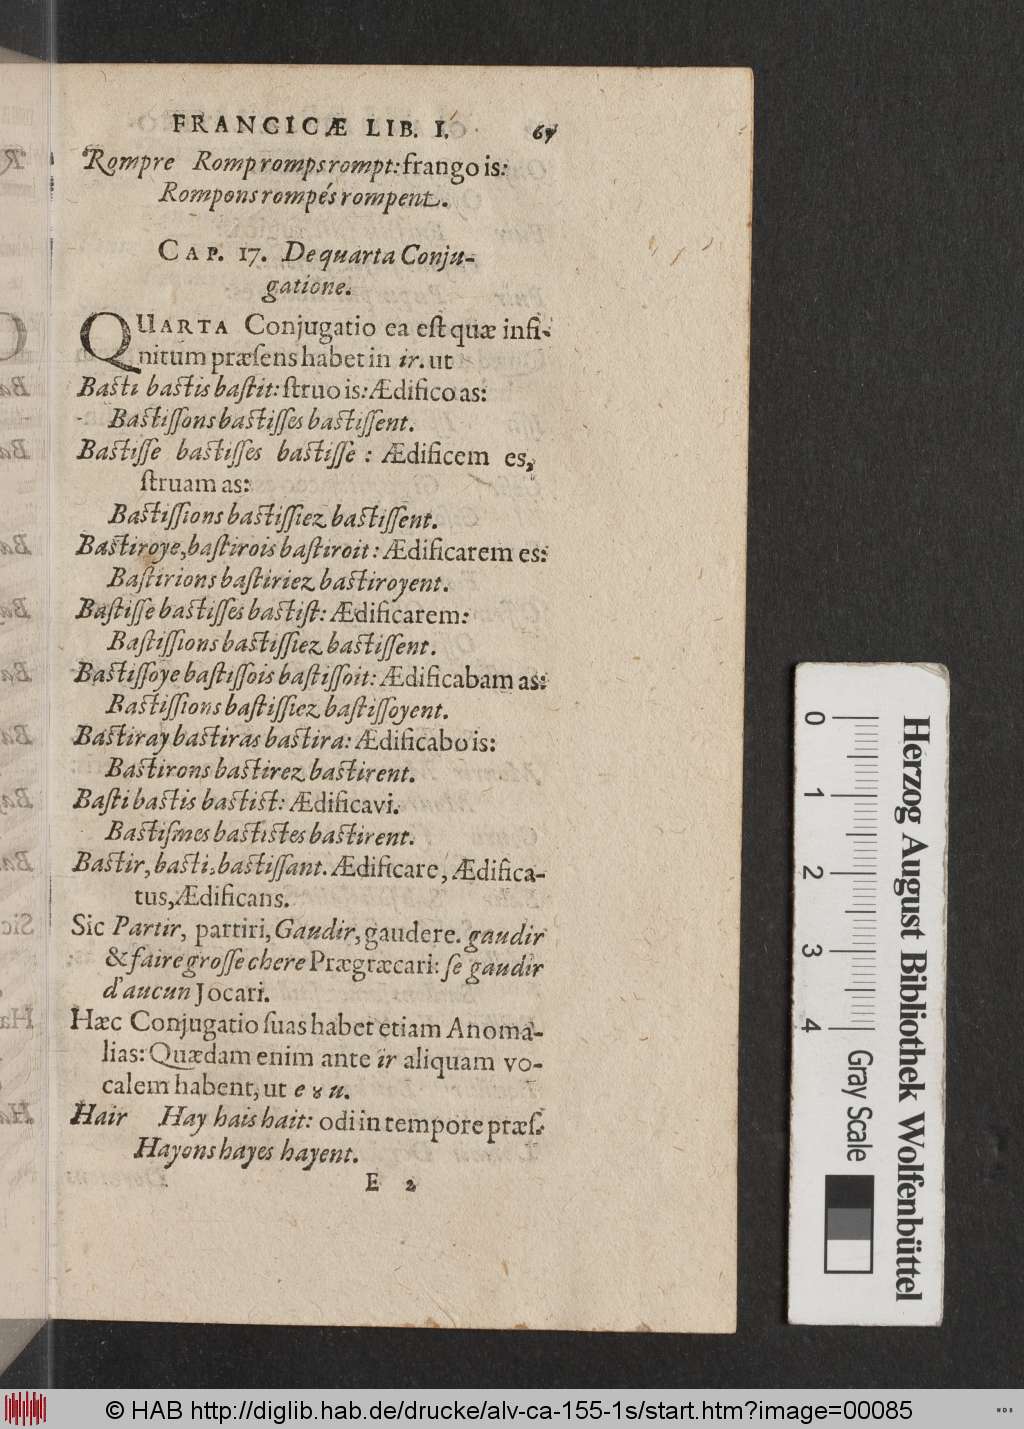 FRANCICÆ LIB. I. 67
Rompre Romp romps rompt: frango is:
Rompons rompés rompent.
CAP. 17. De quarta Conju-
gatione.
QUARTA Conjugatio ea eſt quæ infi-
nitum præſens habet in ir. ut
Basti bastis baſtit: ſtruo is: Ædifico as:
Bastiſſons bastiſſes bastiſſent.
Bastiſſe bastiſſes bastiſſe : Ædificem es,
ſtruam as:
Bastiſſions bastiſſiez bastiſſent.
Bastiroye, baſtirois baſtiroit: Ædificarem es:
Baſtirions baſtiriez bastiroyent.
Baſtiſſe bastiſſes bastiſt: Ædificarem:
Baſtiſſions bastiſſiez bastiſſent.
Bastiſſoye baſtiſſois baſtiſſoit: Ædificabam as:
Bastiſſions baſtiſſiez baſtiſſoyent.
Bastiray bastiras bastira: Ædificabo is:
Bastirons bastirez bastirent.
Baſti bastis bastist: Ædificavi.
Bastiſmes bastistes bastirent.
Bastir, basti, bastiſſant. Ædificare, Ædifica-
tus, Ædificans.
Sic Partir, partiri, Gaudir, gaudere. gaudir
& faire groſſe chere Prægræcari: ſe gaudir
d'aucun Jocari.
Hæc Conjugatio ſuas habet etiam Anoma-
lias: Quædam enim ante ir aliquam vo-
calem habent, ut e & u.
Hair Hay hais hait: odi in tempore præſ.
Hayons hayes hayent.
E 2
0 1 2 3 4
Herzog August Bibliothek Wolfenbüttel
Gray Scale
© HAB http://diglib.hab.de/drucke/alv-ca-155-1s/start.htm?image=00085